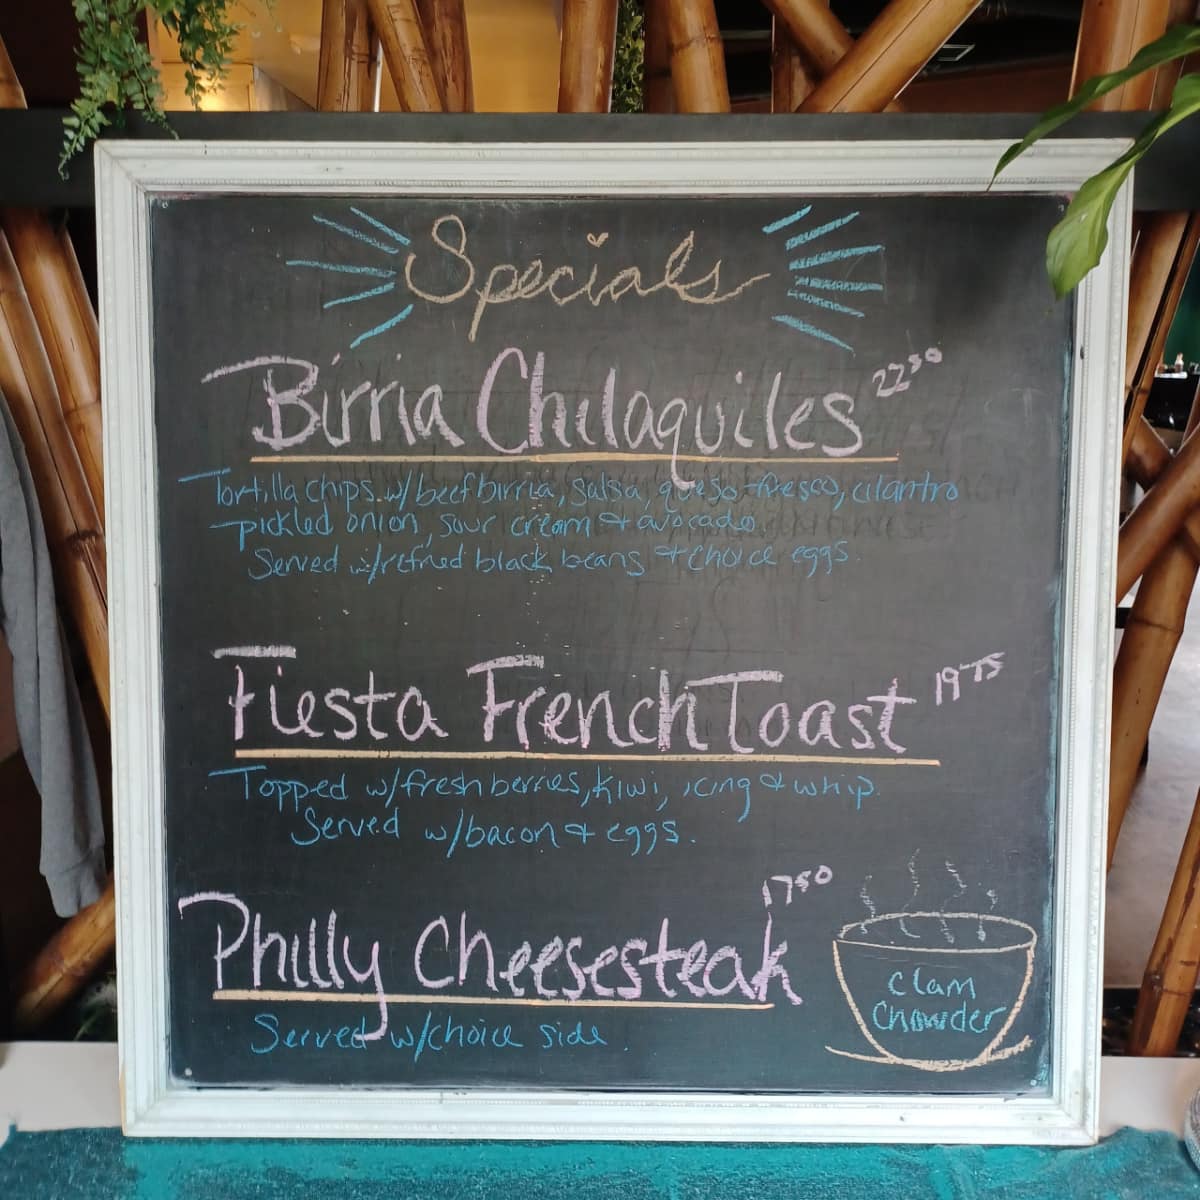 Specials
Birria Chilaquiles 22.50
Tortilla chips w/ beef birria, salsa, queso fresco, cilantro
pickled onion, sour cream & avocado
Served w/ refried black beans & choice eggs.
Fiesta French Toast 19.75
Topped w/ fresh berries, kiwi, icing & whip.
Served w/ bacon & eggs.
Philly Cheesesteak 17.50
Served w/ choice side.
Clam
Chowder